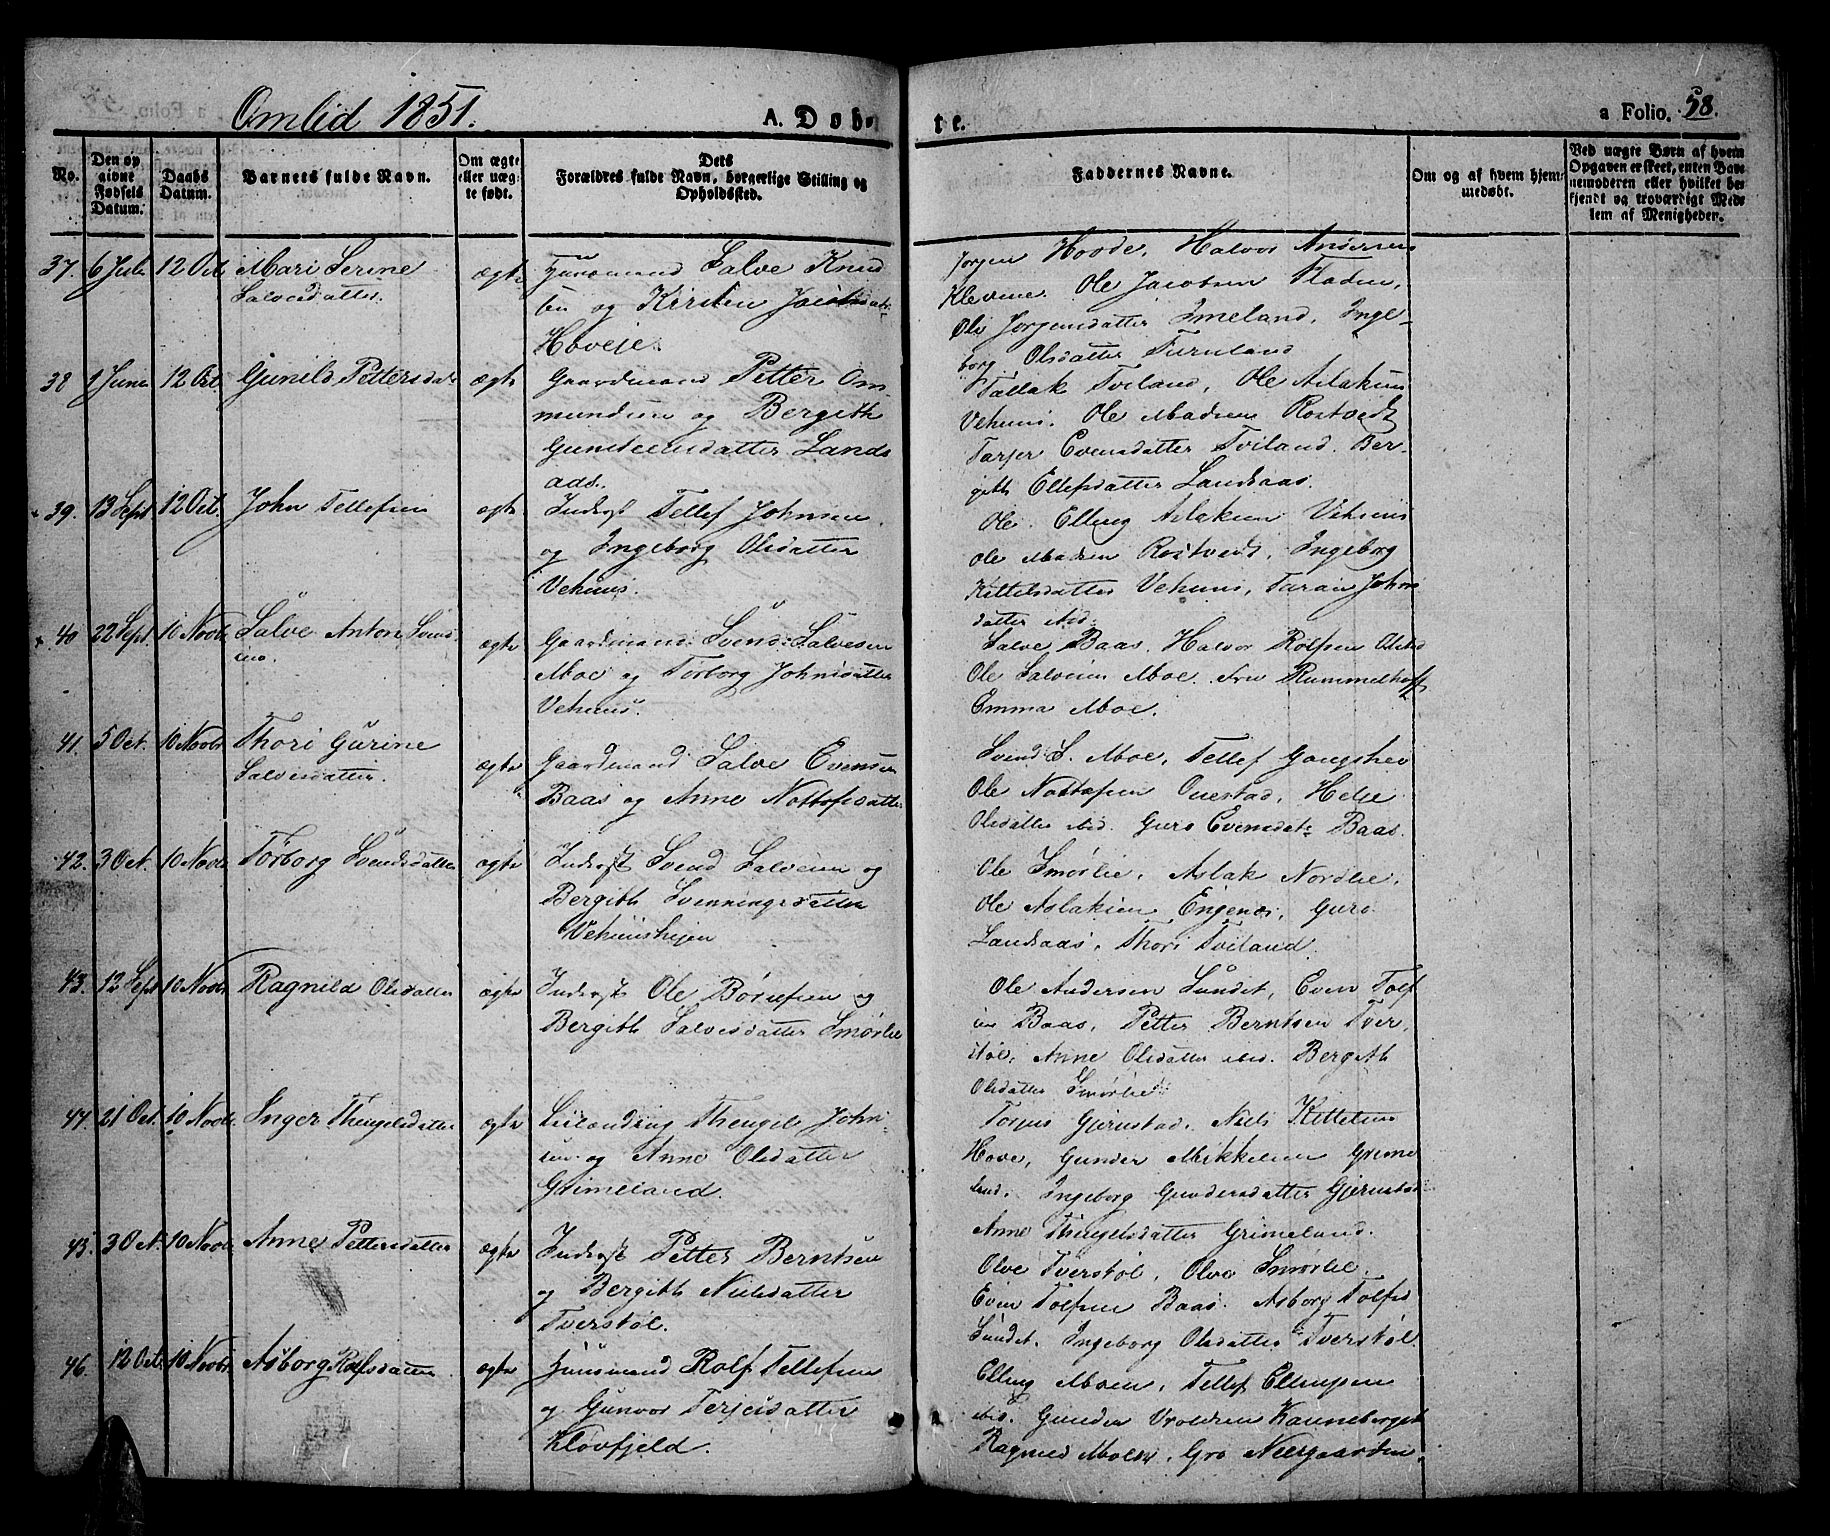 Omlid 1851.
A. Døb
te.
a Folio. 58.
No.
Den op
givne
Fødsels
Datum.
Daabs
Datum.
Barnets fulde Navn.
Om ægte
eller uæg-
te født.
Dets
Forældres fulde Navn, borgerlige Stilling og
Opholdssted.
Faddernes Navne.
Om og af hvem hjem-
medøbt.
Ved uægte Børn af hvem
Opgaven er skeet, enten Bar-
nemoderen eller hvilket be-
kjendt og troværdigt Med-
lem af Menigheden.
37. 6 Juli 12 Oct Mari Serine
Salvesdatter.
ægte
Salve Knud
sen og Kirsten
Hoveje.
Jørgen Hovde, Halvor Andersen
Klevene. Ole Jacobsen Fladen,
Jorgensdatter Imeland, Inge-
borg Olsdatter
38 1 Juni 12 Oct. Gunild Pettersdatr
ægte
Gaardmand Petter Om-
mundsen og Bergith
Gunsteensdatter Lands
aas.
Tallak Tveland, Ole Aslaksen
Vehuus. Ole Madsen Rostvedt
Evensdatter Tveland. Ber-
gith Ellefsdatter Landsaas.
39. 13 Sept 12 Oct. John Tellefsen
ægte
Inderst Tellef Johnsen
og Ingeborg Olsdatter
Vehuus.
Ole. Elling Aslaksen Vehuus
Ole Madsen Rostvedt, Ingeborg
Kittelsdatter Vehuus, Taran Johns
datter ibid.
40 22 Sept. 10 Novbr Salve Anton Svend
sen.
ægte
Gaardmand Svend Salvesen
Moe og Torborg Johnsdatter
Vehuus.
Salve Baas. Halvor Rolfsen
Ole Salvesen Moe. Fru Rummelhoff
Emma Moe.
41. 5 Oct. 10 Novbr Thori Gurine
Salvesdatter.
ægte
Gaardmand Salve Evensen
Baas og Anne Nottofsdatter
Svend S. Moe, Tellef
Ole Nottofsen Onestad, Helje
Olsdatter ibid. Guro Evensdatr Baas.
42. 3 Oct. 10 Novbr Torborg Svendsdatter
ægte
Inderst Svend Salvesen og
Bergith Svenningsdatter
Vehuusheien
Ole Smørlie, Aslak Nordlie,
Ole Aslaksen Engenæs, Guro
Landsaas, Thori Tveland.
43. 12 Sept 10 Novbr Ragnild Olsdatter
ægte
Inderst Ole
og
Bergith Salvesdatter Smørlie
Ole Andersen Sundet, Even Tolf
sen Baas, Petter Berntsen Tver-
støl, Anne Olsdatter ibid. Bergith
Olsdatter Smørlie.
44. 21 Oct. 10 Novbr. Inger Thengelsdatter
ægte
Leilænding Thengel John-
sen og Anne Olsdatter
Grimeland.
Torjus Gjerustad. Niels Kittelsen
Hove, Gunder Mikkelsen Grime
land. Ingeborg Gundersdatter Gjerustad
Anne Thengelsdatter Grimeland.
45. 3 Oct. 10 Novbr Anne Pettersdatter
ægte
Inderst Petter Berntsen
og Bergith Nielsdatter
Tverstøl.
Olve Tverstøl, Olve Smørlie.
Even Tolfsen Baas. Asborg Tolfsd
Sundet. Ingeborg Olsdatter Tverstøl
46. 12 Oct. 10 Novbr. Asborg Rolfsdatter
ægte
Huusmand Rolf Tellefsen
og Gunvor Terjesdatter
Kløvfjeld.
Elling Moen, Tellef Ellingsen
ibid. Gunder
Ragnild Gro Neegaarden.